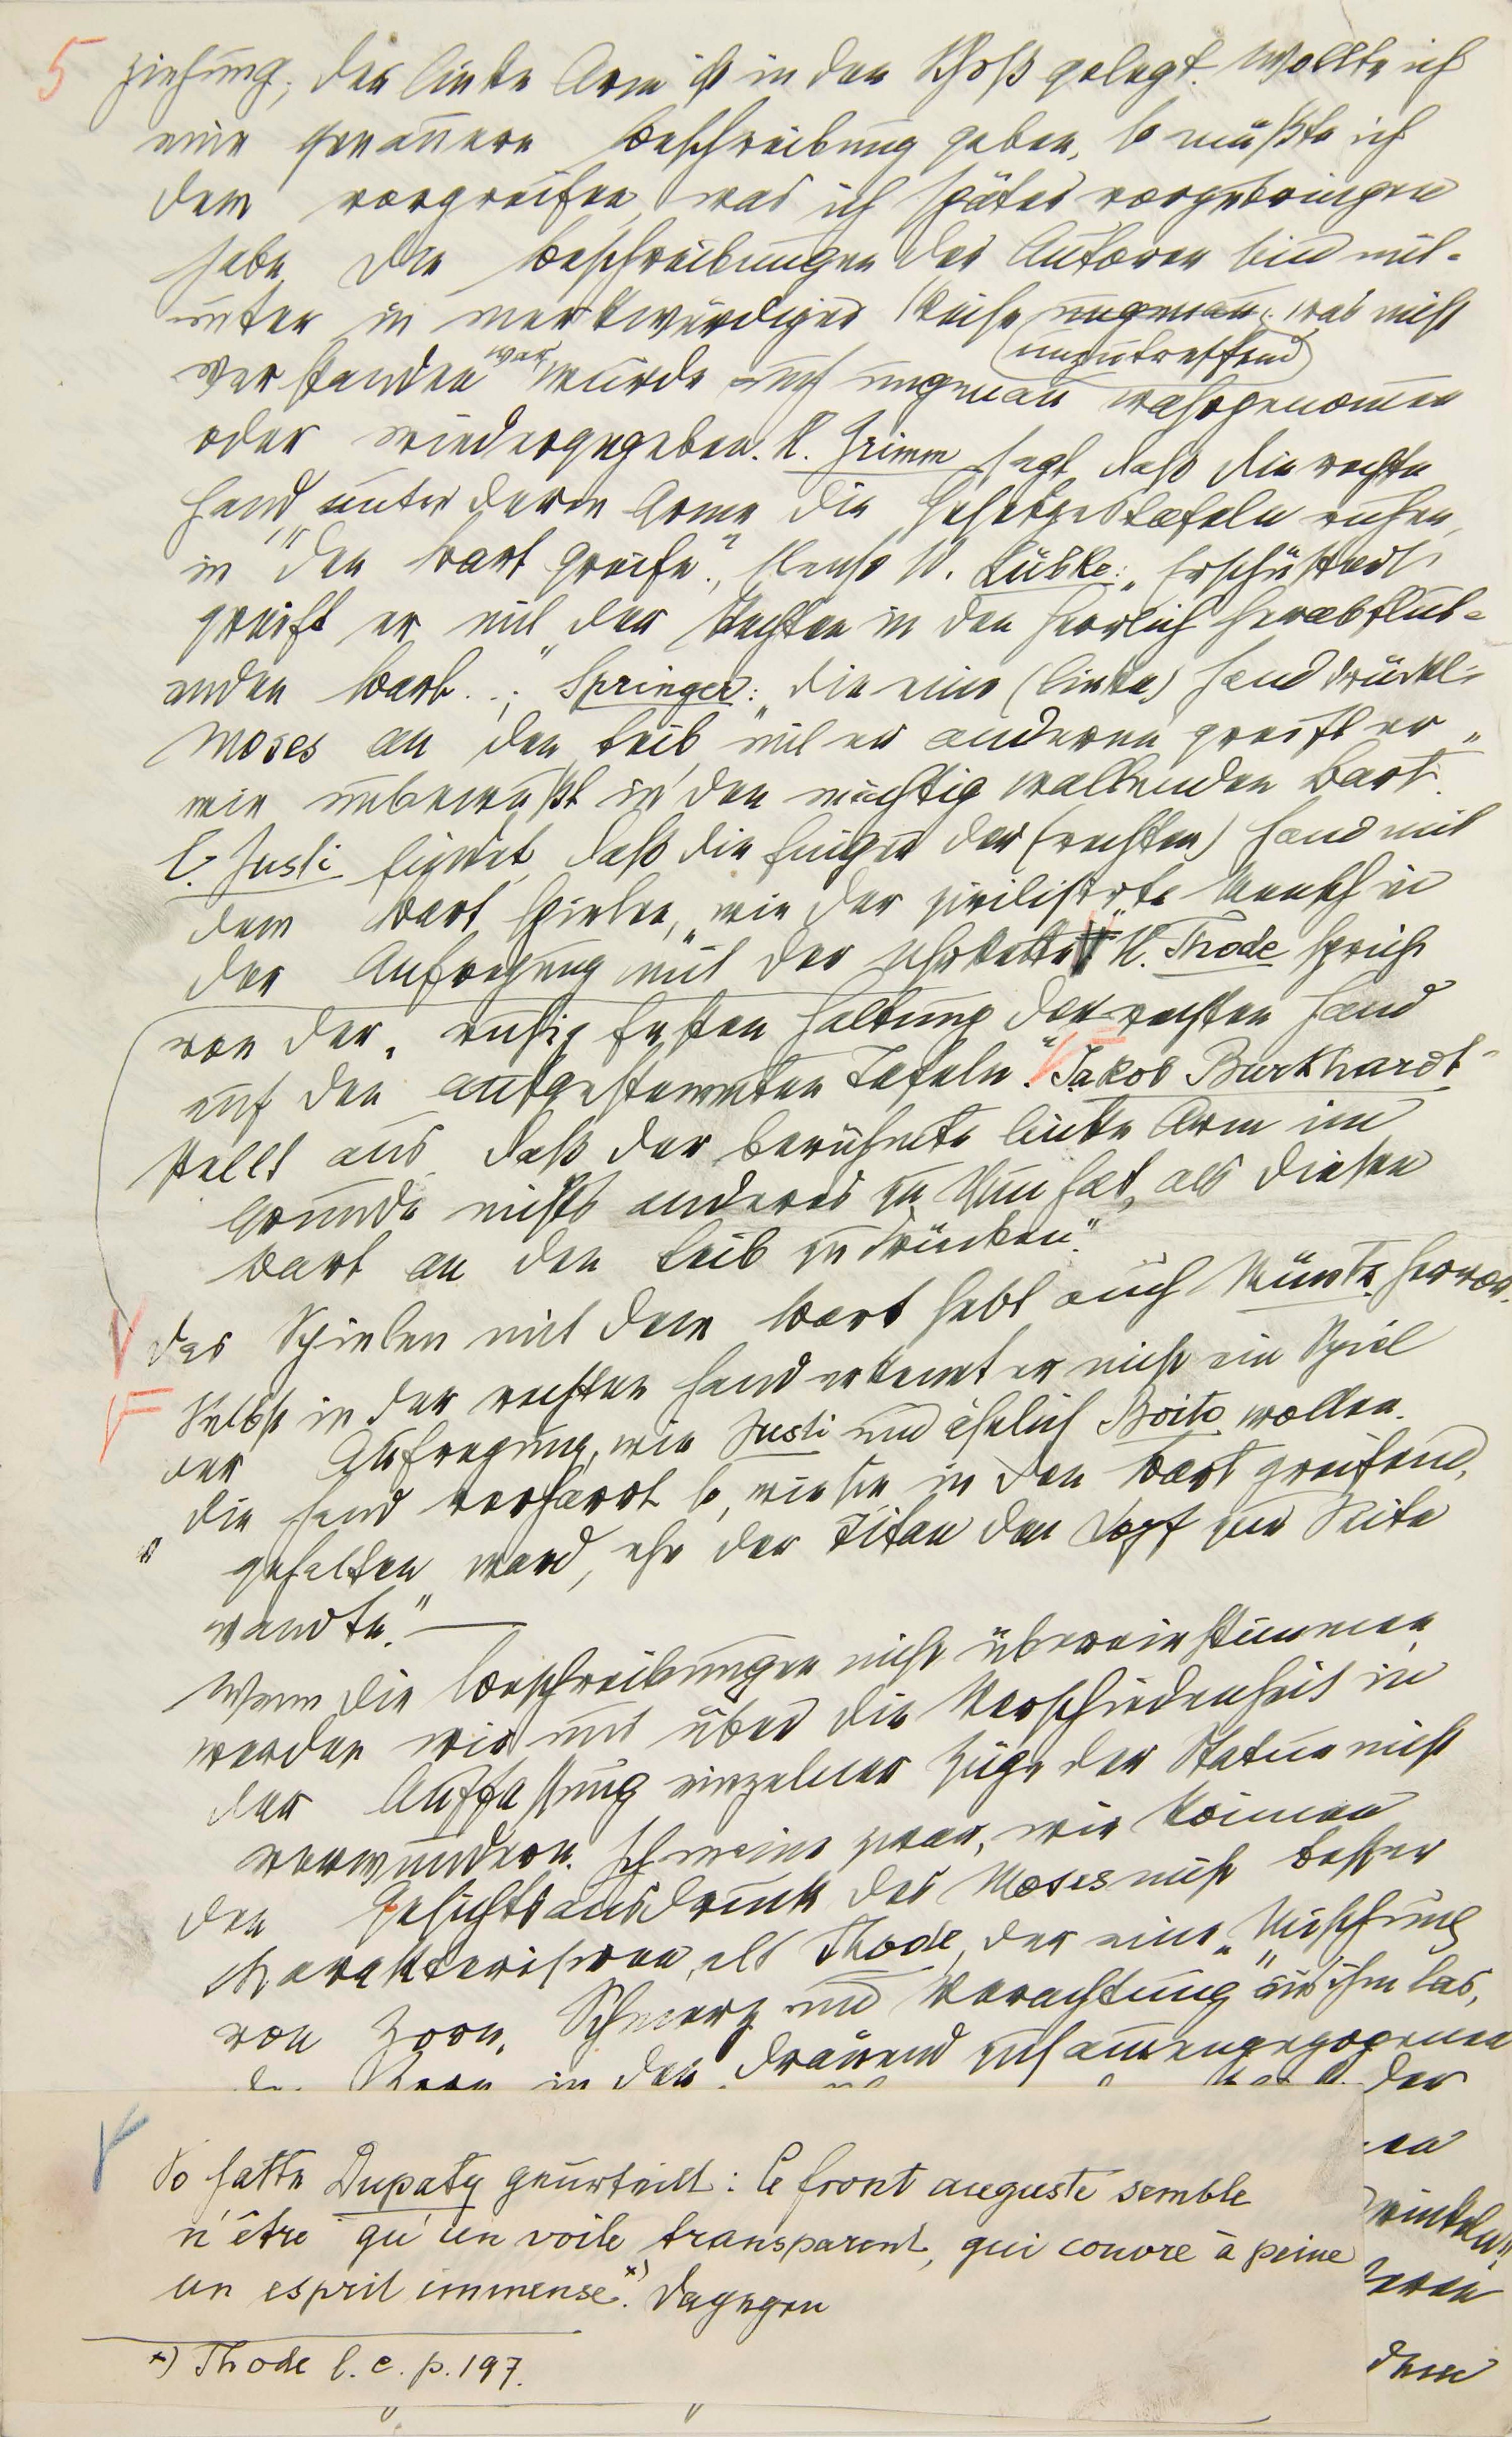 5 ziehung, der linke Arm ist in den Schoß gelegt. Wollte ich
eine genauere Beschreibung geben, so müßte ich
dem vorgreifen, was ich später vorzubringen
habe. Die Beschreibungen der Autoren sind mit-
unter in merkwürdiger Weise ungenau; was nicht
unzutreffend
verstanden war wurde auch ungenau wahrgenommen
oder wiedergegeben. H. Grimm sagt, daß die rechte
Hand, unter deren Arme die Gesetzestafeln ruhen,
in "den Bart greife". Ebenso W. Lübke: „Erschüttert
greift er mit der Rechten in den herrlich herabflut-
enden Bart..; Springer: „die eine (linke) Hand drückt
Moses an den Leib, mit er anderen greift er „
wie unbewußt in den mächtig wallenden Bart.
C. Justi findet, daß die Finger der (rechten) Hand mit
dem Bart spielen, „wie der zivilisirte Mensch in
der Aufregung mit der Uhrkette." H. Thode spricht
von der „ruhig festen Haltung der rechten Hand
auf den aufgestemmten Tafeln". Jakob Burkhardt
stellt aus, daß der berühmte linke Arm im
Grunde nichts anderes zu thun hat, als diesen
Bart an den Leib zu drücken."
Das Spielen mit dem Bart hebt auch Müntz hervor.
Selbst in der rechten Hand erkennt er nicht ein Spiel
der Aufregung, wie Justi und ähnlich Boito wollen.
„die Hand verharrt so, wie sie in den Bart greifend,
gehalten ward, ehe der Titan den Kopf zur Seite
wandte." —
Wenn die Beschreibungen nicht übereinstimmen
werden wir uns über die Verschiedenheit in
der Auffassung einzelner Züge der Statue nicht
verwundern. Ich meine zwar, wir können
den Gesichtsausdruck des Moses nicht besser
charakterisiren, als Thode, der eine „Mischung
von Zorn, Schmerz und Verachtung" aus ihm las,
den Zorn in den dräuend zusammengezogenen
der
So hatte Dupaty geurteilt: Ce front auguste semble
n'être qu'un voile transparent, qui couvre à peine
un esprit immense.*) Dagegen
*) Thode l. c. p. 197.